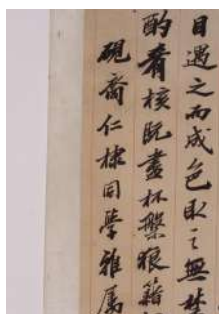 目遇之而成色取之無禁
酌肴核既盡杯盤狼籍
硯斎仁棣同學雅属